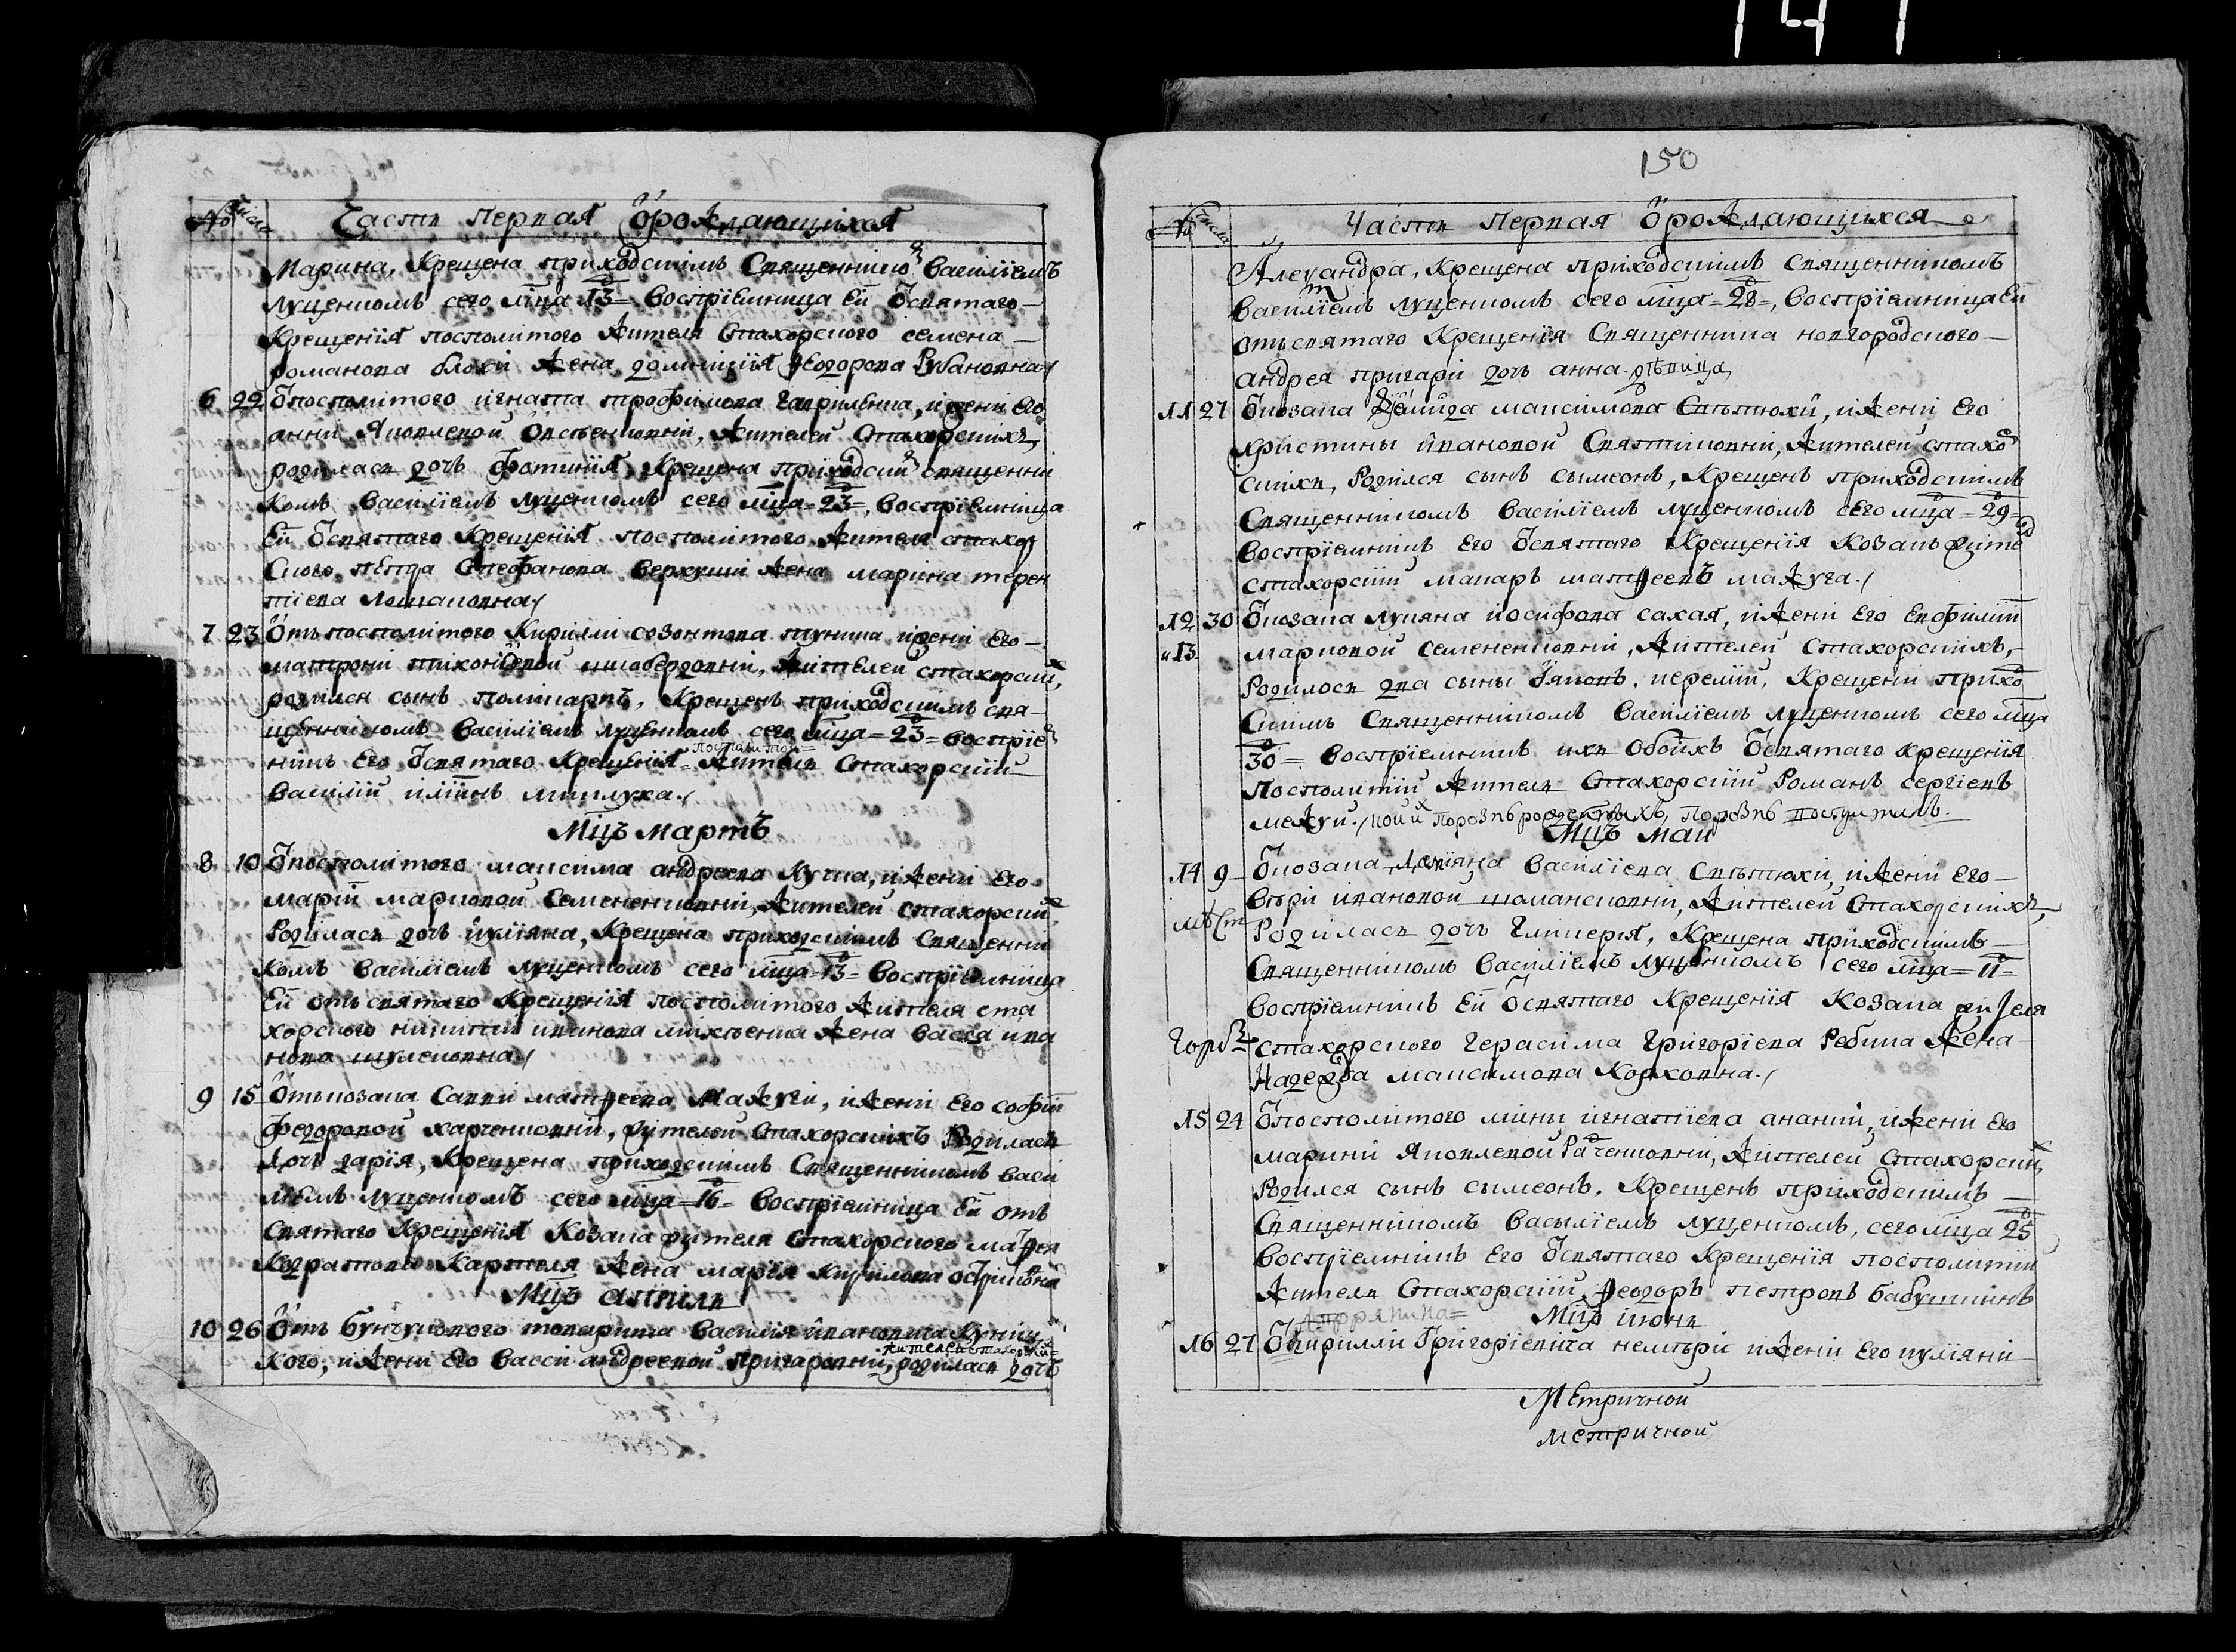 № Числа Часть первая ѿ рождающихся
Марина, Крещена приходскимъ Священнико Василіемъ
Луценкомъ сего мца 13 Воспріемница Ей ѿ святаго
Крещенія посполитого жителя Стахорского семена
романова блохи жена домникия Феодорова Рубановна
6 22 ѿ посполитого игната трофимова гаврильчка, и жени его
анни Яковлевой Овсѣенковни, жителей Стахорскихъ,
родилась дочь Фотинія, Крещена приходски священни
комъ Василіемъ Луценкомъ сего мца 23, Воспріемница
Ей ѿ святаго Крещенія посполитого жителя стахор
ского Стефанова Верхуши жена марина терен
тіева
7 23 ѿ посполитого Кирилли созонтова и жени его
матрони тихоновой жителей стахорски,
родился сынъ поликарпъ, Крещенъ приходскимъ свя
щенникомъ Василіемъ Луценкомъ сего мца 23 воспріе
никъ Его ѿ святаго Крещенія посполитои житель Стахорский
Василий илиинъ миклуха
Мцъ мартъ
8 10 ѿ посполитого максима андреева Кучка, и жени Его
марій марковой Семененковни, жителей стахорски
Родилась дочь иуліяна, Крещена приходскимъ Священни
комъ Василіемъ Луценкомъ сего мца 13 Воспріемница
Ей отъ святаго Крещенія посполитого жителя ста
хорского никити иванова михѣенка жена Васса ива
нова шулековна
9 15 Отъ козака Савви матфеева Мажуги, и жени Его софій
Федоровой харченковни, жителей Стахорскихъ Родилась
Дочь дарія, Крещена приходскимъ Священникомъ Васи
ліемъ Луценкомъ сего мца 16 Воспріемница Ей отъ
Святаго Крещенія Козака жителя Стахорского матфея
Кодратова жена марія Кирилова
Мцъ априль
10 26 Отъ бунчукового товарища Василія ивановича Куниц
кого, и жени Его Васси андреевой Пригаровни, жителей стахорски родилась дочь
150
№ Числа Часть первая ѿ рождающихся
Александра, Крещена приходскимъ священникомъ
Василіемъ Луценкомъ сего мца 28, Воспріемница Ей
отъ святаго Крещенія Священника новгородского
андрея пригари дочь анна дѣвица
11 27 ѿ козака Демида максимова Свѣтюхи, и жени Его
христины ивановой жителей стахо
скихъ, Родился сынъ сѵмеонъ, Крещенъ приходскимъ
Священникомъ Василіемъ Луценкомъ сего мца 29
Воспріемникъ Его ѿ святаго Крещенія Козакъ жите
стахорский макаръ матфеевъ мажуга
12 30 ѿ козака Лукяна иосифова сахая, и жени Его Евфимій
и 13 марковой Семененковни, жителей Стахорскихъ,
Родилось два сыны Іяковъ, иеремій, Крещени прихо
скимъ Священникомъ Василіемъ Луценкомъ сего мца
30 Воспріемникъ ихъ обоихъ ѿ святаго крещенія
Посполитий житель Стахорский Романъ сергіевъ
межуй
Мцъ май
14 9 ѿ козака Лукіяна Василіева Свѣтюхи, и жени Его
Вѣри ивановой жителей Стахорскихъ,
Родилась дочь Гликерія, Крещена приходскимъ
Священникомъ Василіемъ Луценкомъ сего мца 11
Воспріемникъ Ей ѿ святаго Крещенія Козака жителя
стахорского Герасима Григоріева Ребика Жена
Надежда максимова
15 24 ѿ посполитого мины игнатіева ананий, и жени Его
марини Яковлевой жителей Стахорски
Родился сынъ сѵмеонъ, Крещенъ приходскимъ
Священникомъ Василіемъ Луценкомъ, сего мца 25
Воспріемникъ Его ѿ святаго Крещенія посполитий
житель Стахорский, Феодоръ петровъ бабушкинъ
Мцъ июнь
16 27 ѿ Кирилли Григоріевича и жени Его иуліяни
Метричной
метричной